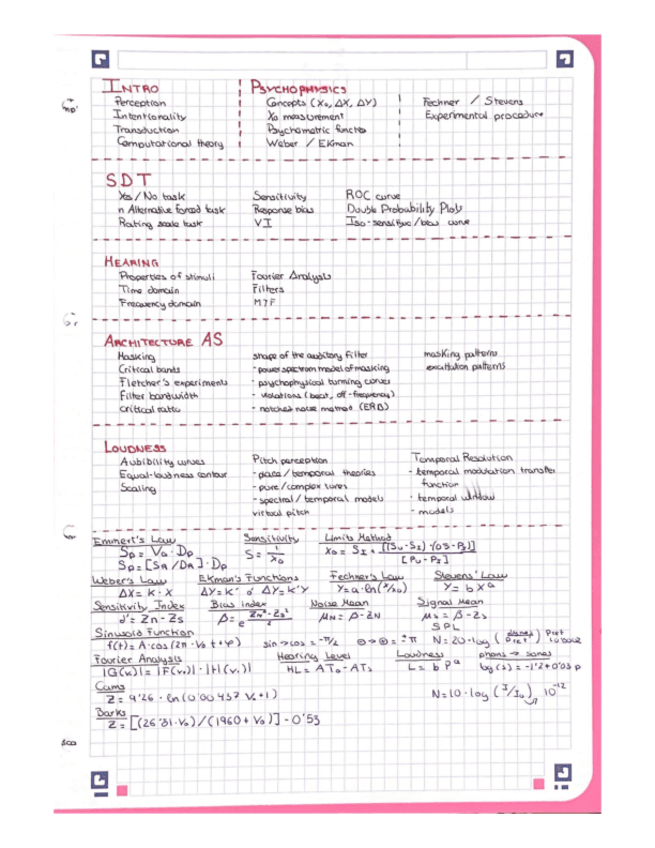 INTRO
Perception
Intentionality
Transduction
Computational theory
PSYCHOPHYSICS
Concepts (X₀, ΔX, ΔY)
X₀ measurement
Psychometric function
Weber / Ekman
Fechner / Stevens
Experimental procedure
SDT
Yes / No task
n Alternative forced task
Rating scale task
Sensitivity
Response bias
VI
ROC curve
Double Probability Plots
Iso-sensitive/bias curve
HEARING
Properties of stimuli
Time domain
Frequency domain
Fourier Analysis
Filters
MTF
ARCHITECTURE AS
Masking
Critical bands
Fletcher's experiments
Filter bandwidth
critical ratio
shape of the auditory filter
- power spectrum model of masking
- psychophysical tunning curves
- violations (beat, off-frequency)
- notched noise method (ERB)
masking patterns
excitation patterns
LOUDNESS
Audibility curves
Equal-loudness contour
Scaling
Pitch perception
- place / temporal theories
- pure / complex tones
- spectral / temporal models
virtual pitch
Temporal Resolution
- temporal modulation transfer
function
- temporal window
- models
Emmert's Law
Sp = Va · Dp
Sp = [SA / DA] · Dp
Sensitivity
S = 1/X₀
Limits Method
Weber's Law
ΔX = K · X
Ekman's Functions
ΔY = K' o' ΔY = K'Y
Fechner's Law
Y = a · ln(X/X₀)
Stevens' Law
Y = b Xᵃ
Sensitivity Index
d' = Zn - Zs
Bias index
β = e^((Zn² - Zs²)/2)
Noise Mean
μN = β - ZN
Signal Mean
μs = β - Zs
Sinusoid Function
f(t) = A · cos (2π · V₀ t + φ)
sin → cos = -π/2
SPL
Fourier Analysis
|G(v.)| = |F(v.)| · |H(v.)|
Hearing Level
HL = AT₀ - ATs
Loudness
L = b Pᵃ
phons → sones
log (s) = -1'2 + 0'03 p
Cams
Z = 9'26 · ln (0'00437 V₀ + 1)
N = 10 · log (I/I₀) 10⁻¹²
Barks
Z = [(26'81 · V₀) / (1960 + V₀)] - 0'53